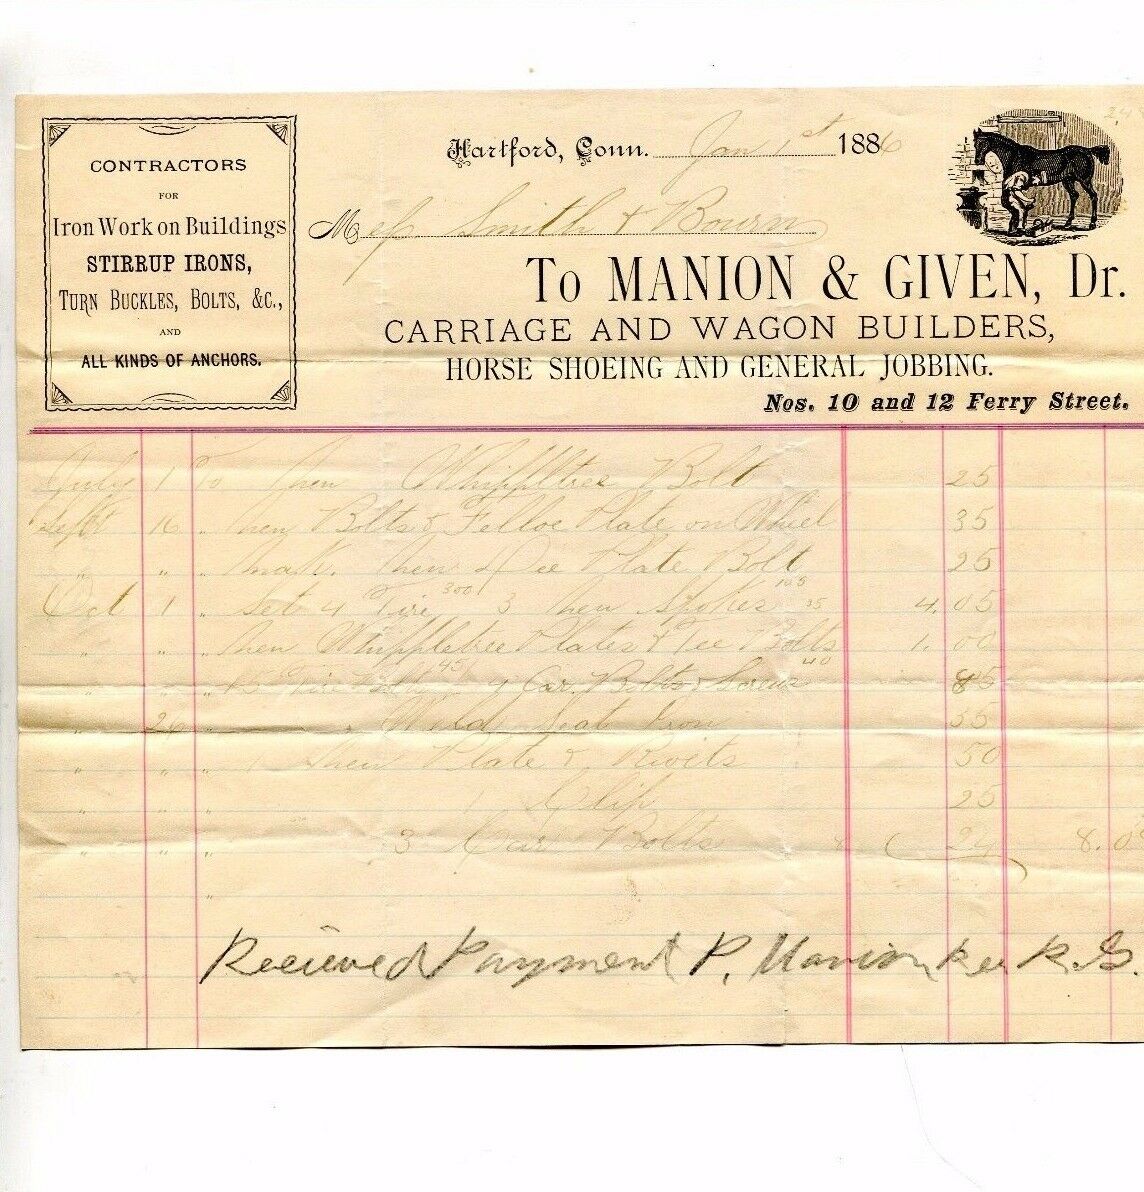 CONTRACTORS
FOR
Iron Work on Buildings
STIRRUP IRONS,
TURN BUCKLES, BOLTS, &C.,
AND
ALL KINDS OF ANCHORS.
24
Hartford, Conn. Jan 1st 1886
Mess Smith & Bourn
To MANION & GIVEN, Dr.
CARRIAGE AND WAGON BUILDERS,
HORSE SHOEING AND GENERAL JOBBING.
Nos. 10 and 12 Ferry Street.
July 1 To New Whiffltree Bolt 25
Sept 16 " New Bolts & Felloe Plate on Wheel 35
" " " New Plate Bolt 25
Oct 1 " Set 4 Tire 300 3 New Spokes 105 35 4.05
" " " New Whippletree Plates & Tee Bolts 1.00
" " " 15 Tire 45 Car. Bolts & Screws 40 85
" 24 " Weld Seat Iron 55
" " " 1 New Plate & Rivets 50
" " " 1 Clip 25
" " " 3 Car Bolts 24 8.0
"
Recieved Payment P. Manion R. G.